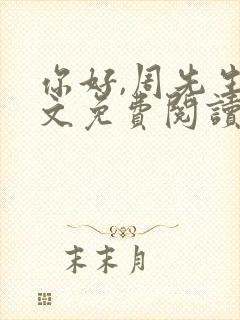 你好,周先生
文免費閱讀
末末月